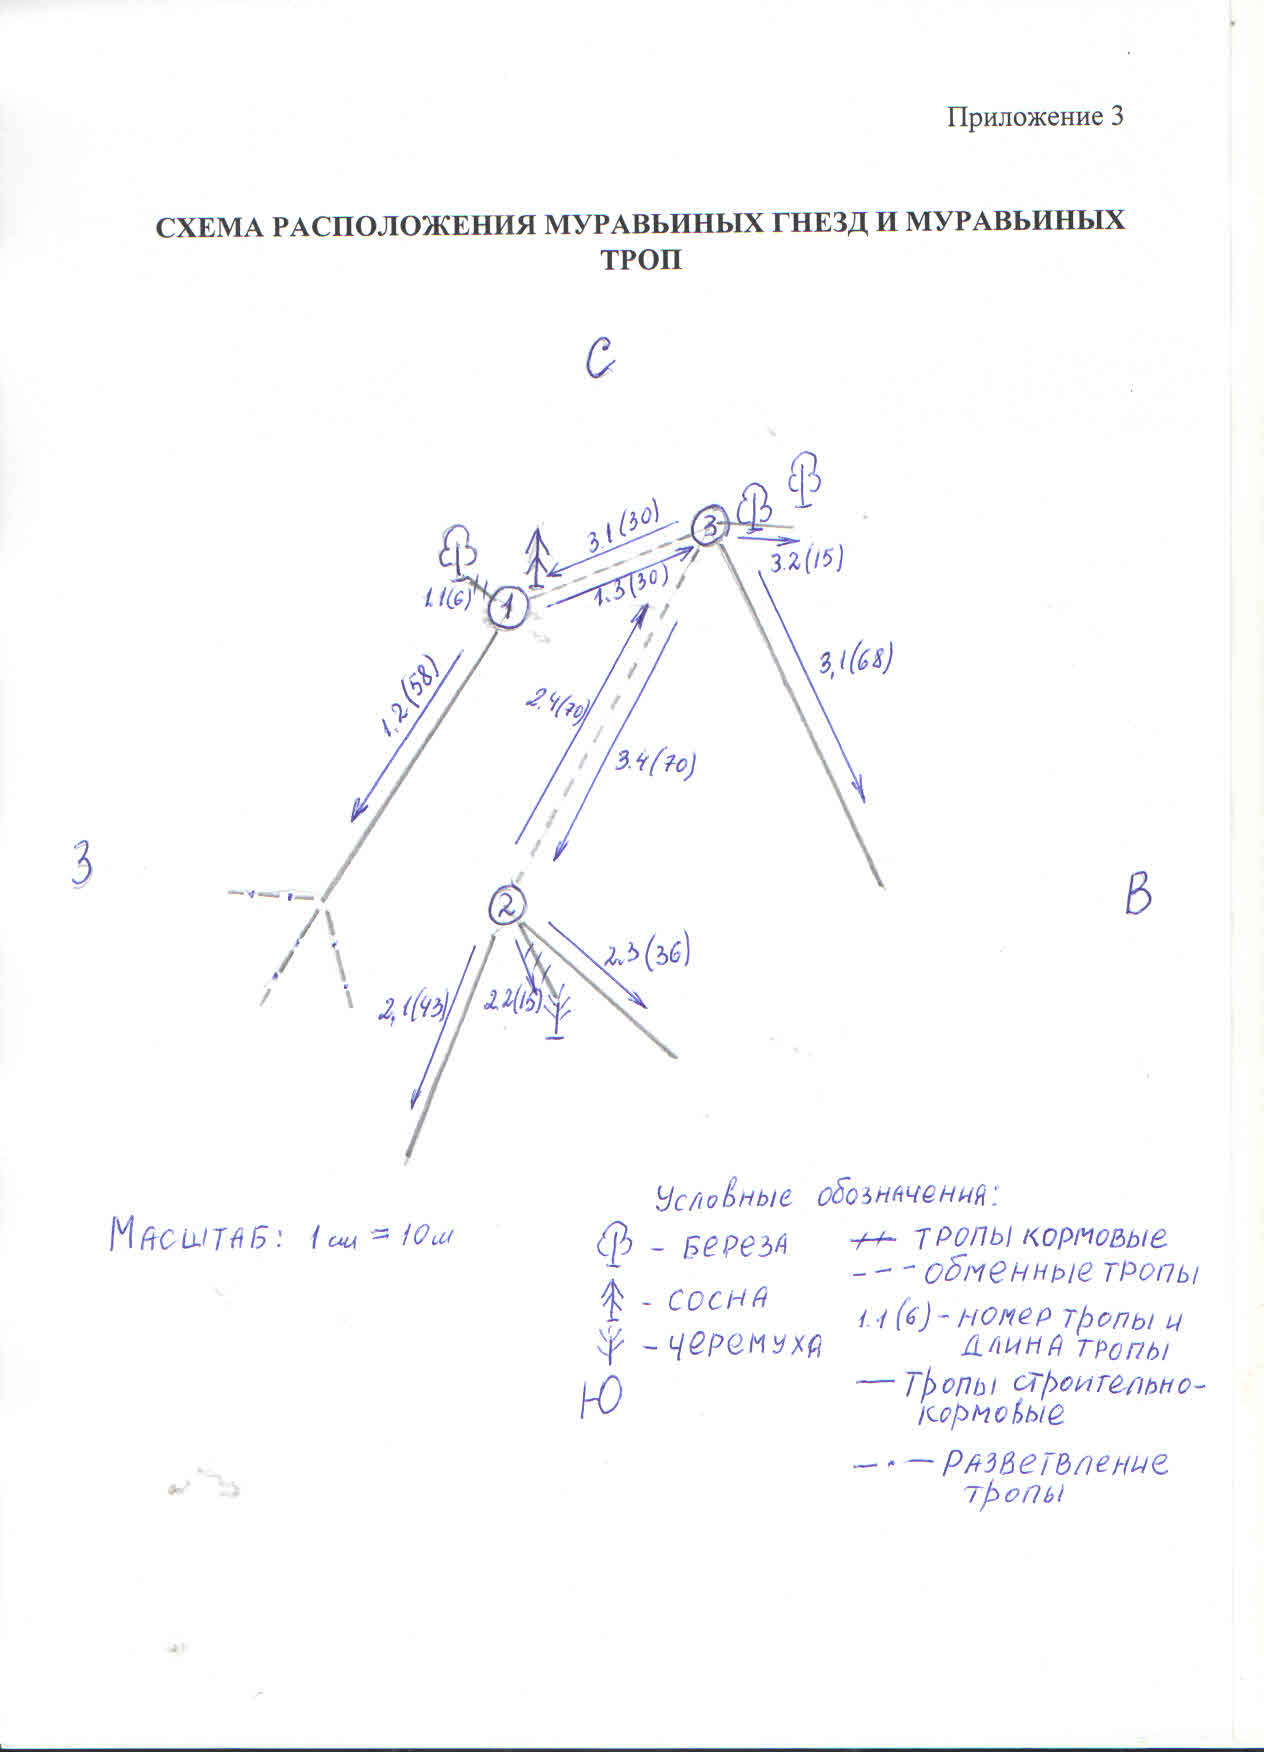 Приложение 3
СХЕМА РАСПОЛОЖЕНИЯ МУРАВЬИНЫХ ГНЕЗД И МУРАВЬИНЫХ
ТРОП
С
3.1(30)
3
3.2(15)
1.1(6)
1
1.3(30)
3,1(68)
1.2(58)
2.4(70)
3.4(70)
З
В
2
2.3(36)
2,1(43)
2.2(15)
Условные обозначения:
МАСШТАБ: 1 см = 10 м
- БЕРЕЗА
- СОСНА
- ЧЕРЕМУХА
Ю
ТРОПЫ КОРМОВЫЕ
- ОБМЕННЫЕ ТРОПЫ
1.1(6) - НОМЕР ТРОПЫ И
ДЛИНА ТРОПЫ
ТРОПЫ СТРОИТЕЛЬНО-
КОРМОВЫЕ
РАЗВЕТВЛЕНИЕ
ТРОПЫ